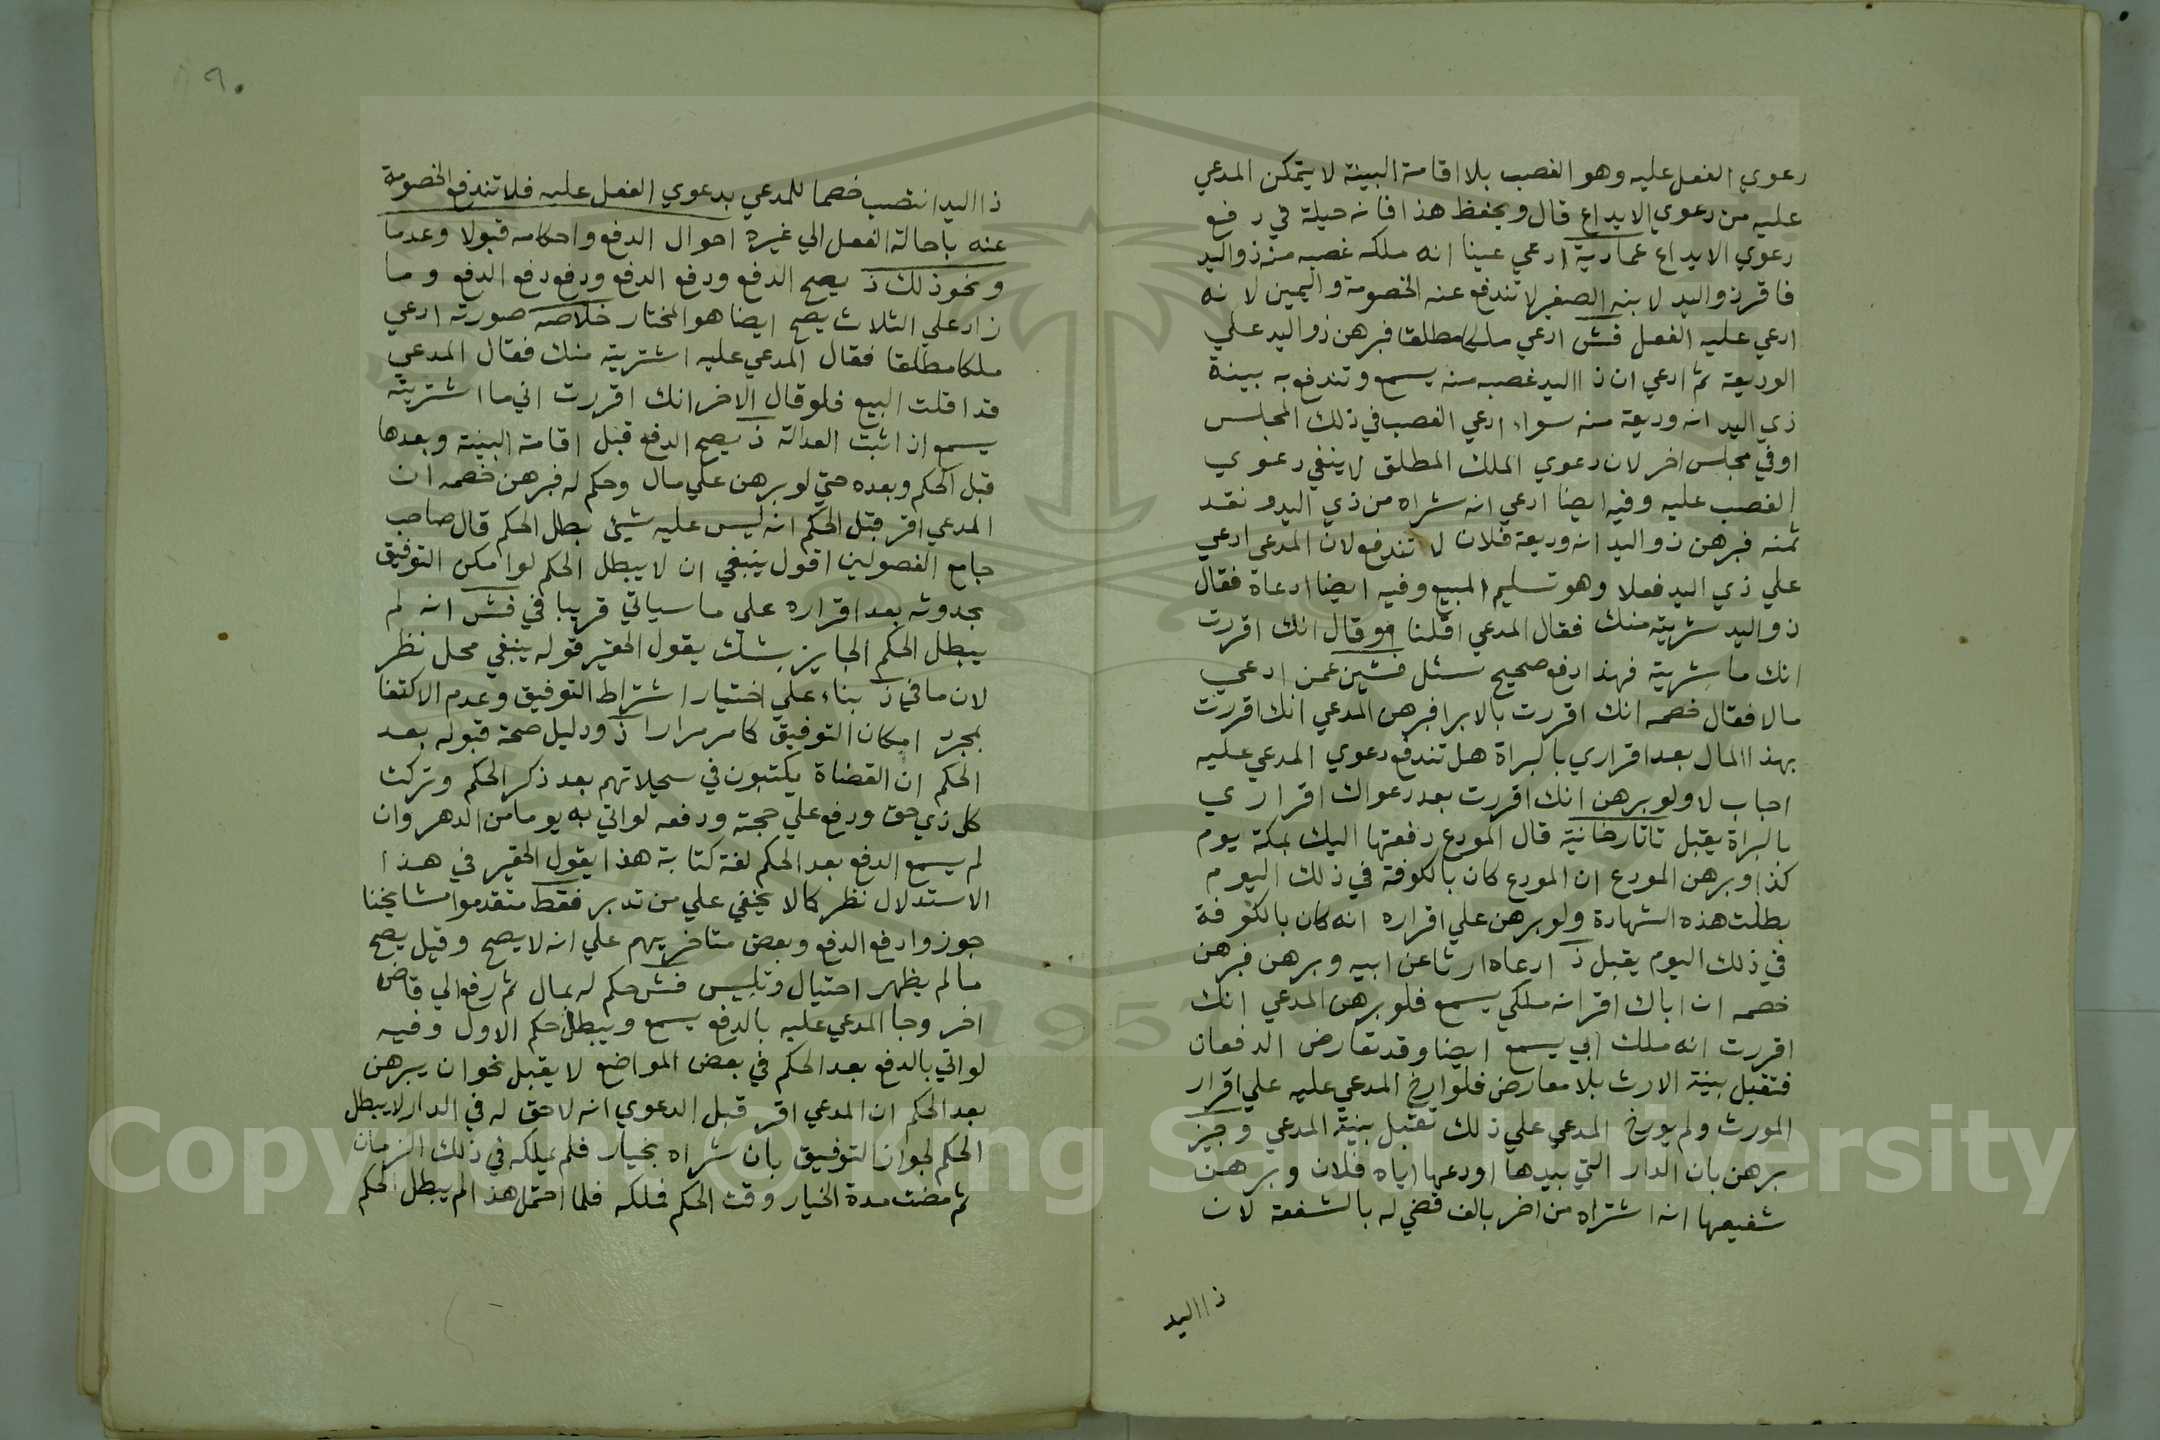 دعوي الفعل عليه وهو الغصب بلا اقامة البينة لا يتمكن المدعي
عليه من دعوي الايداع قال ويحفظ هذا فانه حيلة في دفع
دعوي الايداع عمادية ادعي عينا انه ملكه غصبه منه ذواليد
فاقر ذواليد لابنه الصغير لا تندفع عنه الخصومة واليمين لانه
ادعي عليه الفعل فش ادعي ملكا مطلقا فبرهن ذواليد علي
الوديعة ثم ادعي ان ذااليد غصبه منه يسمع وتندفع به بينة
ذي اليد انه وديعة منه سواء ادعي الغصب في ذلك المجلس
او في مجلس اخر لان دعوي الملك المطلق لا ينفي دعوي
الغصب عليه وفيه ايضا ادعي انه شراه من ذي اليد ونقد
ثمنه فبرهن ذواليد انه وديعة فلان لا تندفع لان المدعي ادعي
علي ذي اليد فعلا وهو تسليم المبيع وفيه ايضا ادعاه فقال
ذواليد شريته منك فقال المدعي اقلنا فوقال انك اقررت
انك ما شريته فهذا دفع صحيح سئل فشين عمن ادعي
مالا فقال خصمه انك اقررت بالابرا فبرهن المدعي انك اقررت
بهذا المال بعد اقراري بالبراة هل تندفع دعوي المدعي عليه
اجاب لا ولو برهن انك اقررت بعد دعواك اقراري
بالبراة يقبل تاتارخانية قال المودع دفعتها اليك بمكة يوم
كذا وبرهن المودع ان المودع كان بالكوفة في ذلك اليوم
بطلت هذه الشهادة ولو برهن علي اقراره انه كان بالكوفة
في ذلك اليوم يقبل ذ ادعاه ارثا عن ابيه وبرهن فبرهن
خصمه ان اباك اقر انه ملكي يسمع فلو برهن المدعي انك
اقررت انه ملك ابي يسمع ايضا وقد تعارض الدفعان
فتقبل بينة الارث بلا معارض فلو ارخ المدعي عليه علي اقرار
المورث ولم يورخ المدعي علي ذلك تقبل بينة المدعي وجيز
برهن بان الدار التي بيدها اودعها اياه فلان وبرهن
شفيعها انه اشتراه من اخر بالف قضي له بالشفعة لان
ذااليد
٩٠
ذااليد انتصب خصما للمدعي بدعوي الفعل عليه فلا تندفع الخصومة
عنه باحالة الفعل الي غيره احوال الدفع واحكامه قبولا وعدما
ونحو ذلك ذ يصح الدفع ودفع الدفع ودفع دفع الدفع وما
زاد علي الثلاث يصح ايضا هو المختار خلاصه صورته ادعي
ملكا مطلقا فقال المدعي عليه اشتريته منك فقال المدعي
قد اقلت البيع فلو قال الاخر انك اقررت اني ما اشتريته
يسمع اذا ثبت العدالة ذ يصح الدفع قبل اقامة البينة وبعدها
قبل الحكم وبعده حتي لو برهن علي مال وحكم له فبرهن خصمه ان
المدعي اقر قبل الحكم انه ليس عليه شئ بطل الحكم قال صاحب
جامع الفصولين اقول ينبغي ان لا يبطل الحكم لو امكن التوفيق
بحدوثه بعد اقراره علي ما سياتي قريبا في فش انه لم
يبطل الحكم الجايز بشك يقول الحقير قوله ينبغي محل نظر
لان ما في ذ بناء علي اختيار اشتراط التوفيق وعدم الاكتفا
بمجرد امكان التوفيق كما مر مرارا ذ ودليل صحة قبوله بعد
الحكم ان القضاة يكتبون في سجلاتهم بعد ذكر الحكم وتركت
كل ذي حق ودفع علي حجته ودفعه لو اتي به يوما من الدهر وان
لم يسمع الدفع بعد الحكم لغة كتابة هذا يقول الحقير في هذا
الاستدلال نظر كما لا يخفي علي من تدبر فقط متقدموا مشايخنا
جوزوا دفع الدفع وبعض متاخريهم علي انه لا يصح وقيل يصح
ما لم يظهر احتيال وتلبيس فش حكم له بمال ثم رفع الي قاض
اخر وجا المدعي عليه بالدفع يسمع ويبطل حكم الاول وفيه
لو اتي بالدفع بعد الحكم في بعض المواضع لا يقبل نحو ان يبرهن
بعد الحكم ان المدعي اقر قبل الدعوي انه لا حق له في الدار لا يبطل
الحكم لجواز التوفيق بان شراه بخيار فلم يملكه في ذلك الزمان
ثم مضت مدة الخيار وقت الحكم فملكه فلما احتمل هذا لم يبطل الحكم
Copyright © King Saud University
1957